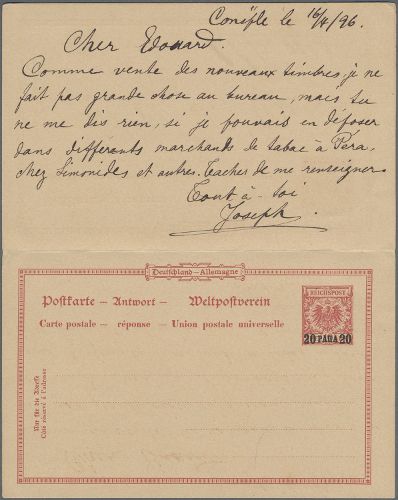 Conifle le 16/4/96.
Cher Edouard.
Comme vente des nouveaux timbres, je ne
fait pas grande chose au bureau, mais tu
ne me dis rien, si je pouvais en déposer
dans differents marchands de tabac à Péra,
chez Simonides et autres. Tacher de me renseigner.
Tout à toi
Joseph.
Deutschland—Allemagne
Postkarte — Antwort — Weltpostverein
Carte postale — réponse — Union postale universelle
REICHSPOST
20 PARA 20
Nur für die Adresse
Côté réservé à l'adresse